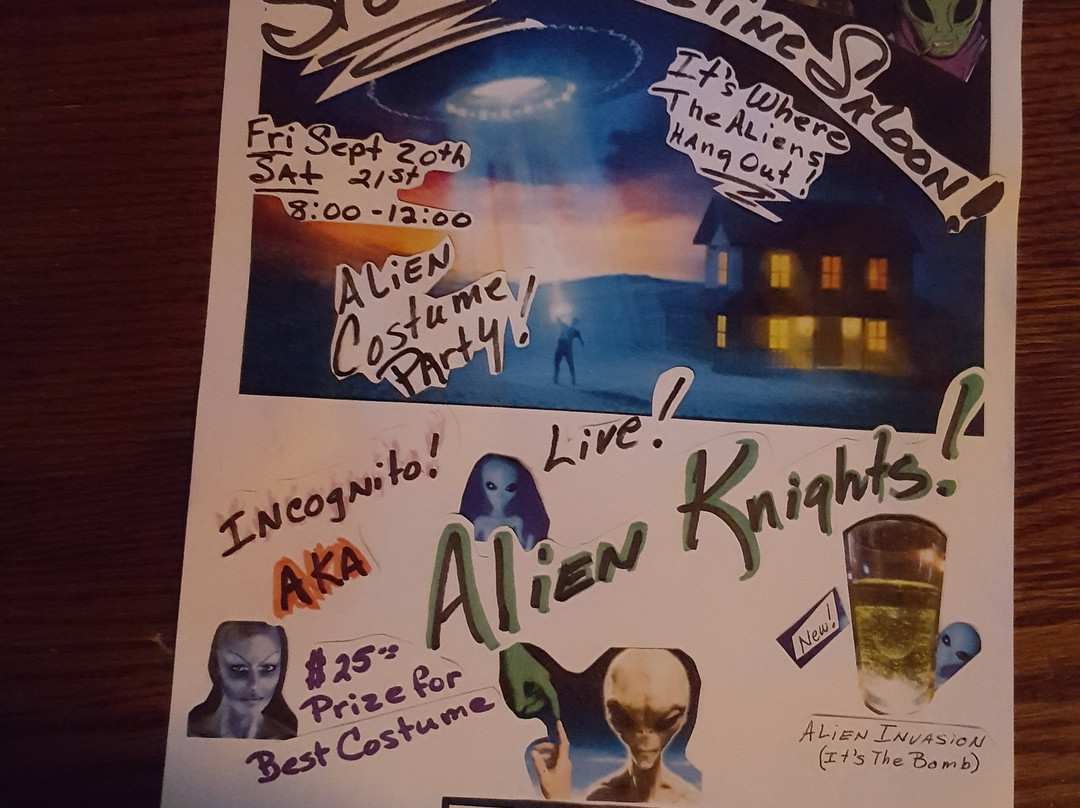 Saloon!
It's Where
The Aliens
Hang Out!
Fri Sept 20th
Sat 21st
8:00 - 12:00
Alien
Costume
Party!
Live!
Incognito!
AKA
Alien Knights!
New!
$25.00
Prize for
Best Costume
Alien Invasion
(It's The Bomb)